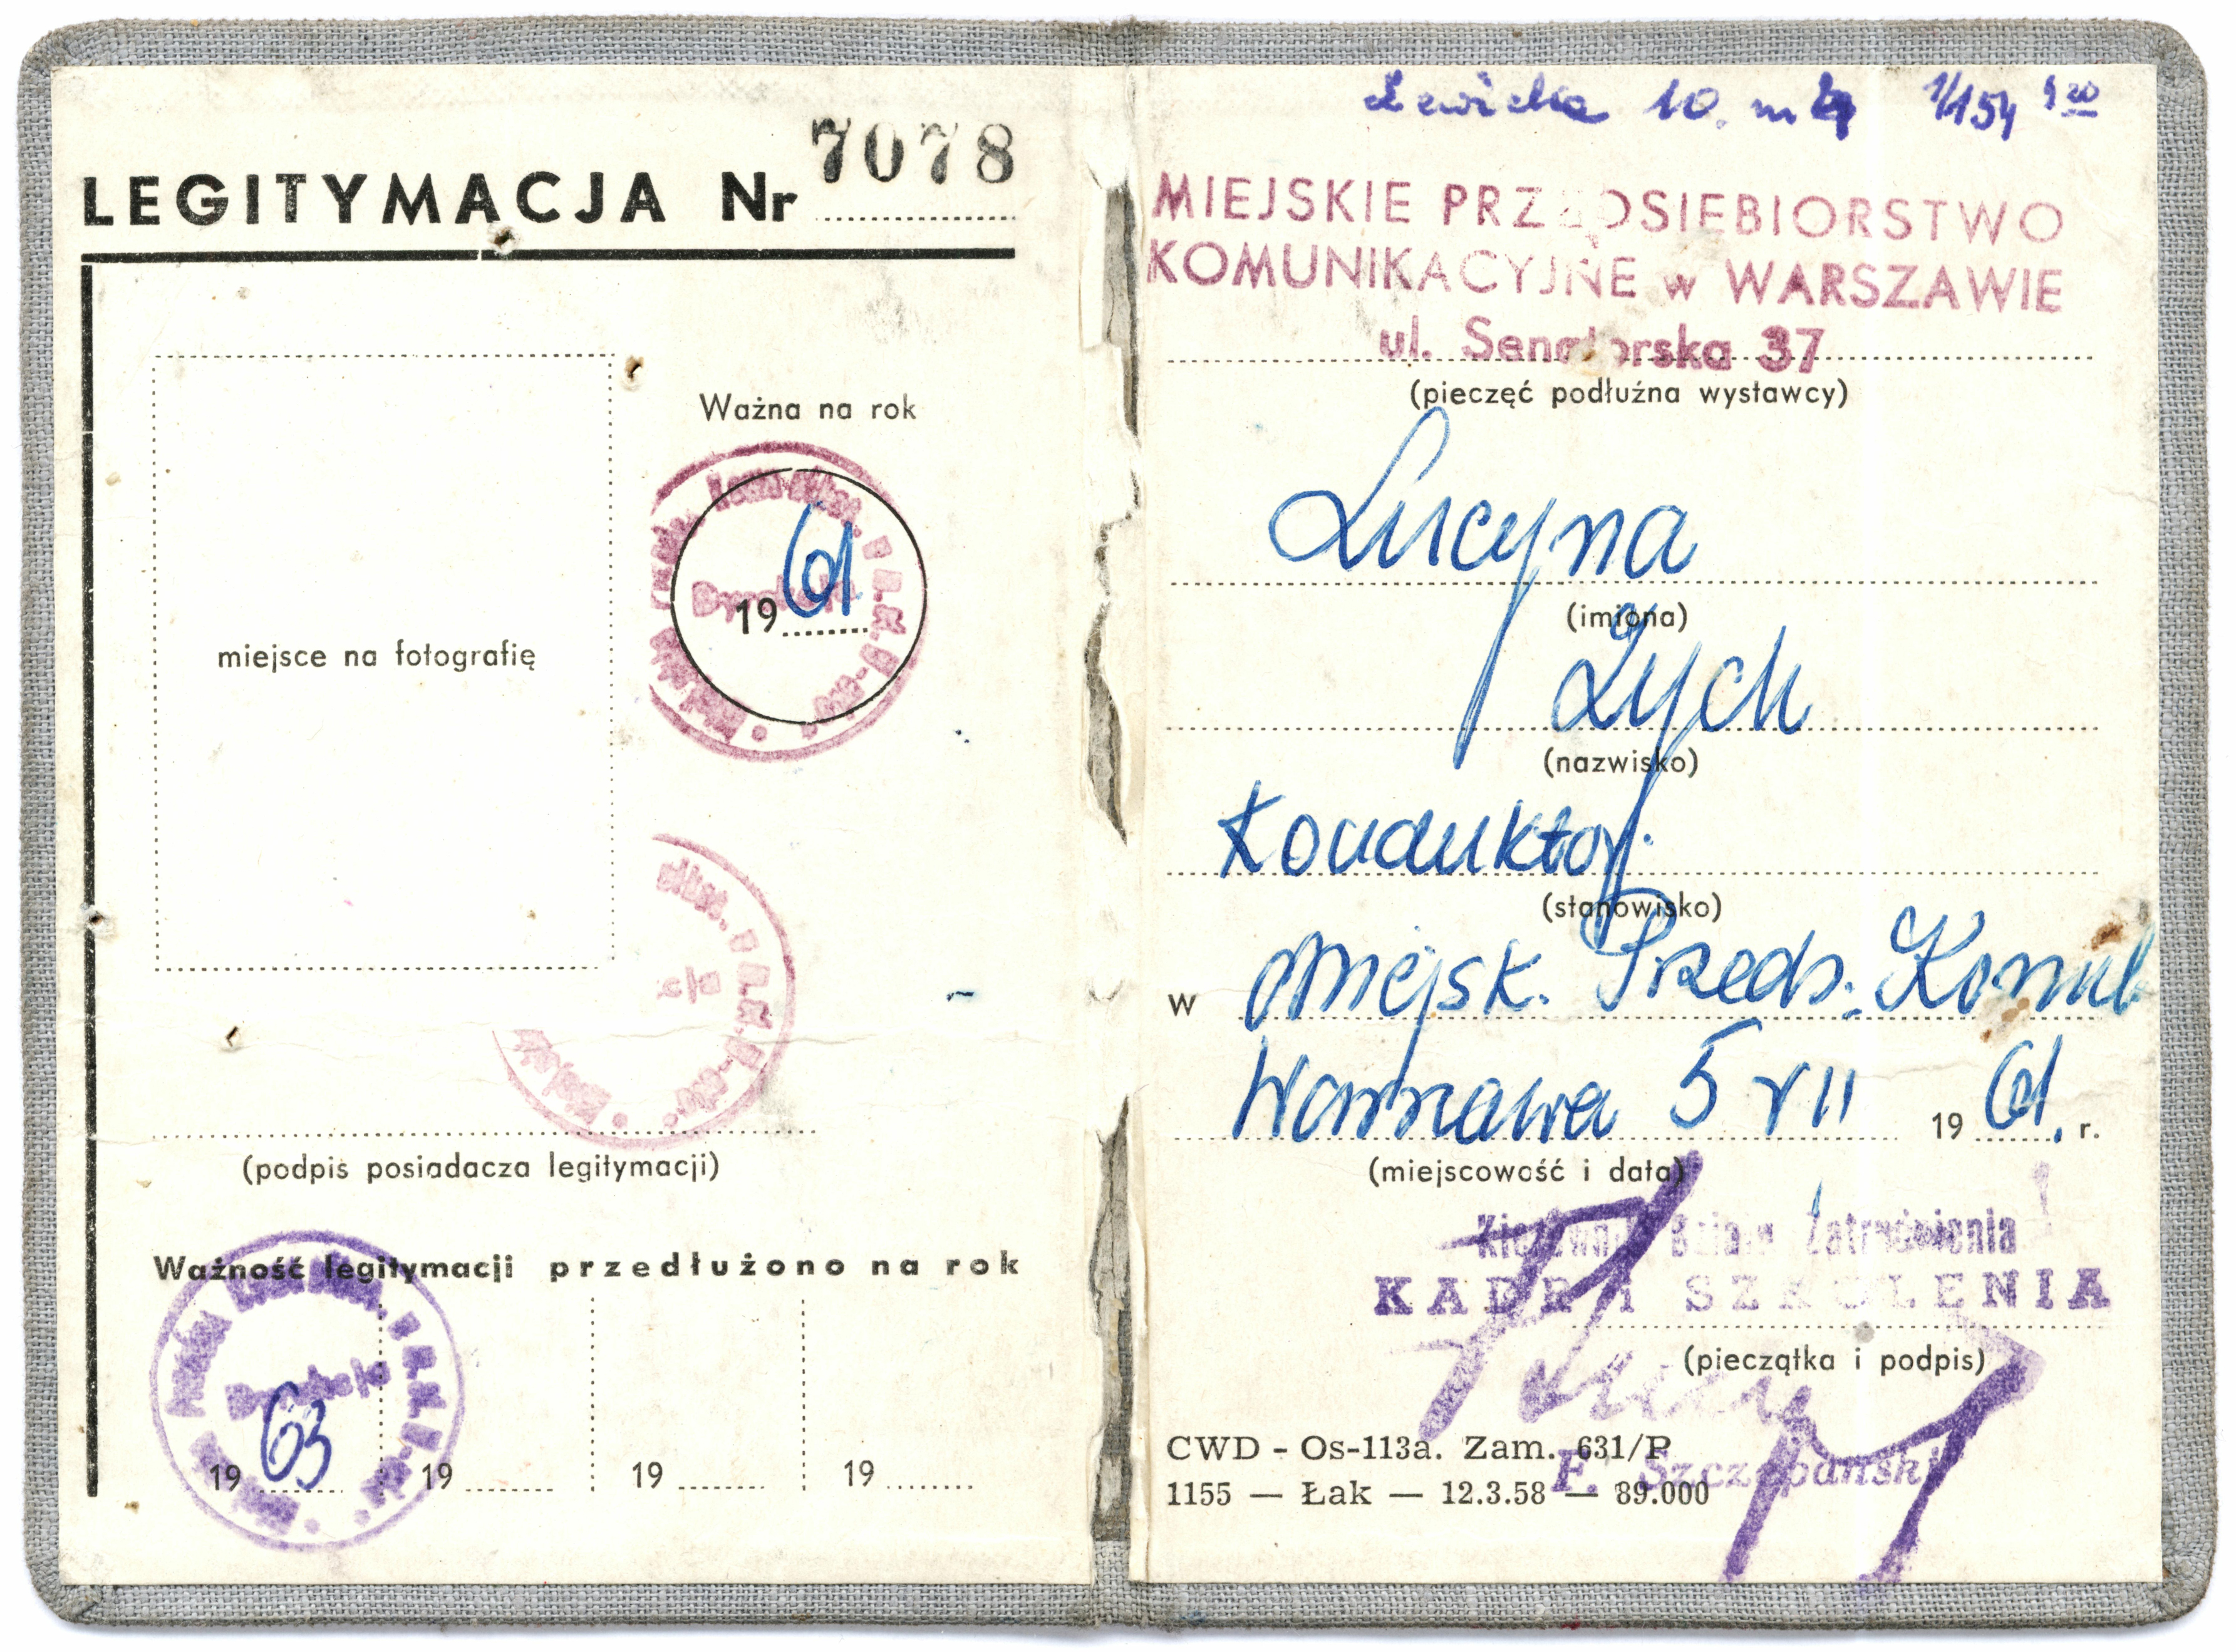 LEGITYMACJA Nr 7078
miejsce na fotografię
Ważna na rok
1961
(podpis posiadacza legitymacji)
Ważność legitymacji przedłużono na rok
1963 19 19 19
10. m 1/154
MIEJSKIE PRZEDSIEBIORSTWO
KOMUNIKACYJNE w WARSZAWIE
ul. Senatorska 37
(pieczęć podłużna wystawcy)
Lucyna
(imiona)
Zych
(nazwisko)
Konduktor.
(stanowisko)
w Miejsk. Przeds. Komu
Warszawa 5 VII 1961. r.
(miejscowość i data)
Kierownik Działu Zatrudnienia
KADR I SZKOLENIA
(pieczątka i podpis)
CWD - Os-113a. Zam. 631/P
F. Szczepański
1155 — Łak — 12.3.58 — 89.000